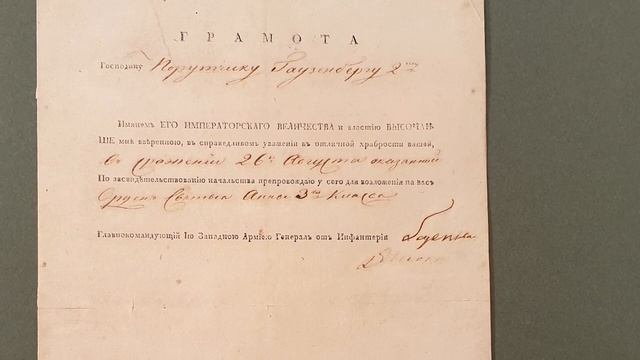 ГРАМОТА
Господину Порутчику Гаузенбергу 2му
Имянемъ ЕГО ИМПЕРАТОРСКАГО ВЕЛИЧЕСТВА и властію ВЫСОЧАЙ-
ШЕ мнѣ ввѣренною, въ справедливомъ уваженіи къ отличной храбрости вашей,
въ сраженіи 26го Августа оказанной
По засвидѣтельствованію начальства препровождаю у сего для возложенія на васъ
Орденъ Святыя Анны 3го Класса
Главнокомандующій 1ю Западною Арміею Генералъ отъ Инфантеріи